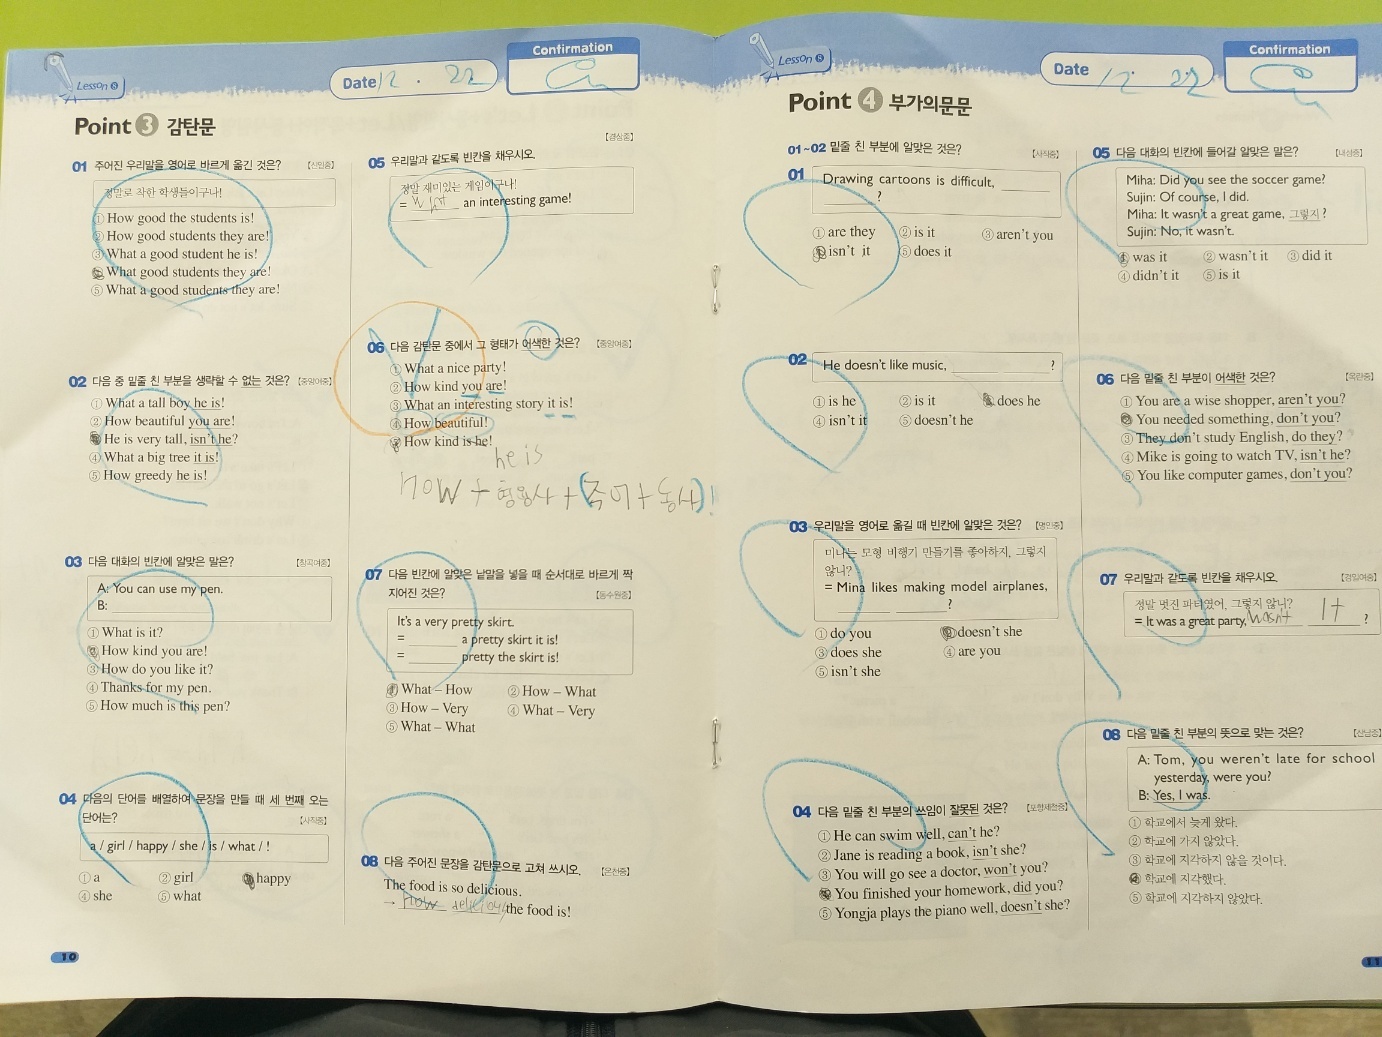 Lesson 8
Date 12. 22
Confirmation
Point 3 감탄문
01 주어진 우리말을 영어로 바르게 옮긴 것은? 【신인중】
정말로 착한 학생들이구나!
① How good the students is!
② How good students they are!
③ What a good student he is!
④ What good students they are!
⑤ What a good students they are!
02 다음 중 밑줄 친 부분을 생략할 수 없는 것은? 【중앙여중】
① What a tall boy he is!
② How beautiful you are!
③ He is very tall, isn't he?
④ What a big tree it is!
⑤ How greedy he is!
03 다음 대화의 빈칸에 알맞은 말은? 【칠곡여중】
A: You can use my pen.
B:
① What is it?
② How kind you are!
③ How do you like it?
④ Thanks for my pen.
⑤ How much is this pen?
04 다음의 단어를 배열하여 문장을 만들 때 세 번째 오는
단어는? 【사직중】
a / girl / happy / she / is / what / !
① a ② girl ③ happy
④ she ⑤ what
10
【경상중】
05 우리말과 같도록 빈칸을 채우시오.
정말 재미있는 게임이구나!
= What an interesting game!
06 다음 감탄문 중에서 그 형태가 어색한 것은? 【중앙여중】
① What a nice party!
② How kind you are!
③ What an interesting story it is!
④ How beautiful!
⑤ How kind is he!
he is
How + 형용사 + (주어 + 동사)!
07 다음 빈칸에 알맞은 낱말을 넣을 때 순서대로 바르게 짝
지어진 것은? 【동수원중】
It's a very pretty skirt.
= a pretty skirt it is!
= pretty the skirt is!
① What – How ② How – What
③ How – Very ④ What – Very
⑤ What – What
08 다음 주어진 문장을 감탄문으로 고쳐 쓰시오. 【온천중】
The food is so delicious.
→ How delicious the food is!
Lesson 8
Date 12. 22
Confirmation
Point 4 부가의문문
01~02 밑줄 친 부분에 알맞은 것은? 【사직중】
01 Drawing cartoons is difficult,
?
① are they ② is it ③ aren't you
④ isn't it ⑤ does it
02 He doesn't like music, ?
① is he ② is it ③ does he
④ isn't it ⑤ doesn't he
03 우리말을 영어로 옮길 때 빈칸에 알맞은 것은? 【명인중】
미나는 모형 비행기 만들기를 좋아하지, 그렇지
않니?
= Mina likes making model airplanes,
?
① do you ② doesn't she
③ does she ④ are you
⑤ isn't she
04 다음 밑줄 친 부분의 쓰임이 잘못된 것은? 【포항제철중】
① He can swim well, can't he?
② Jane is reading a book, isn't she?
③ You will go see a doctor, won't you?
④ You finished your homework, did you?
⑤ Yongja plays the piano well, doesn't she?
05 다음 대화의 빈칸에 들어갈 알맞은 말은? 【내성중】
Miha: Did you see the soccer game?
Sujin: Of course, I did.
Miha: It wasn't a great game, 그렇지?
Sujin: No, it wasn't.
① was it ② wasn't it ③ did it
④ didn't it ⑤ is it
06 다음 밑줄 친 부분이 어색한 것은? 【옥련중】
① You are a wise shopper, aren't you?
② You needed something, don't you?
③ They don't study English, do they?
④ Mike is going to watch TV, isn't he?
⑤ You like computer games, don't you?
07 우리말과 같도록 빈칸을 채우시오. 【경일여중】
정말 멋진 파티였어, 그렇지 않니?
= It was a great party, wasn't It ?
08 다음 밑줄 친 부분의 뜻으로 맞는 것은? 【산남중】
A: Tom, you weren't late for school
yesterday, were you?
B: Yes, I was.
① 학교에서 늦게 왔다.
② 학교에 가지 않았다.
③ 학교에 지각하지 않을 것이다.
④ 학교에 지각했다.
⑤ 학교에 지각하지 않았다.
11